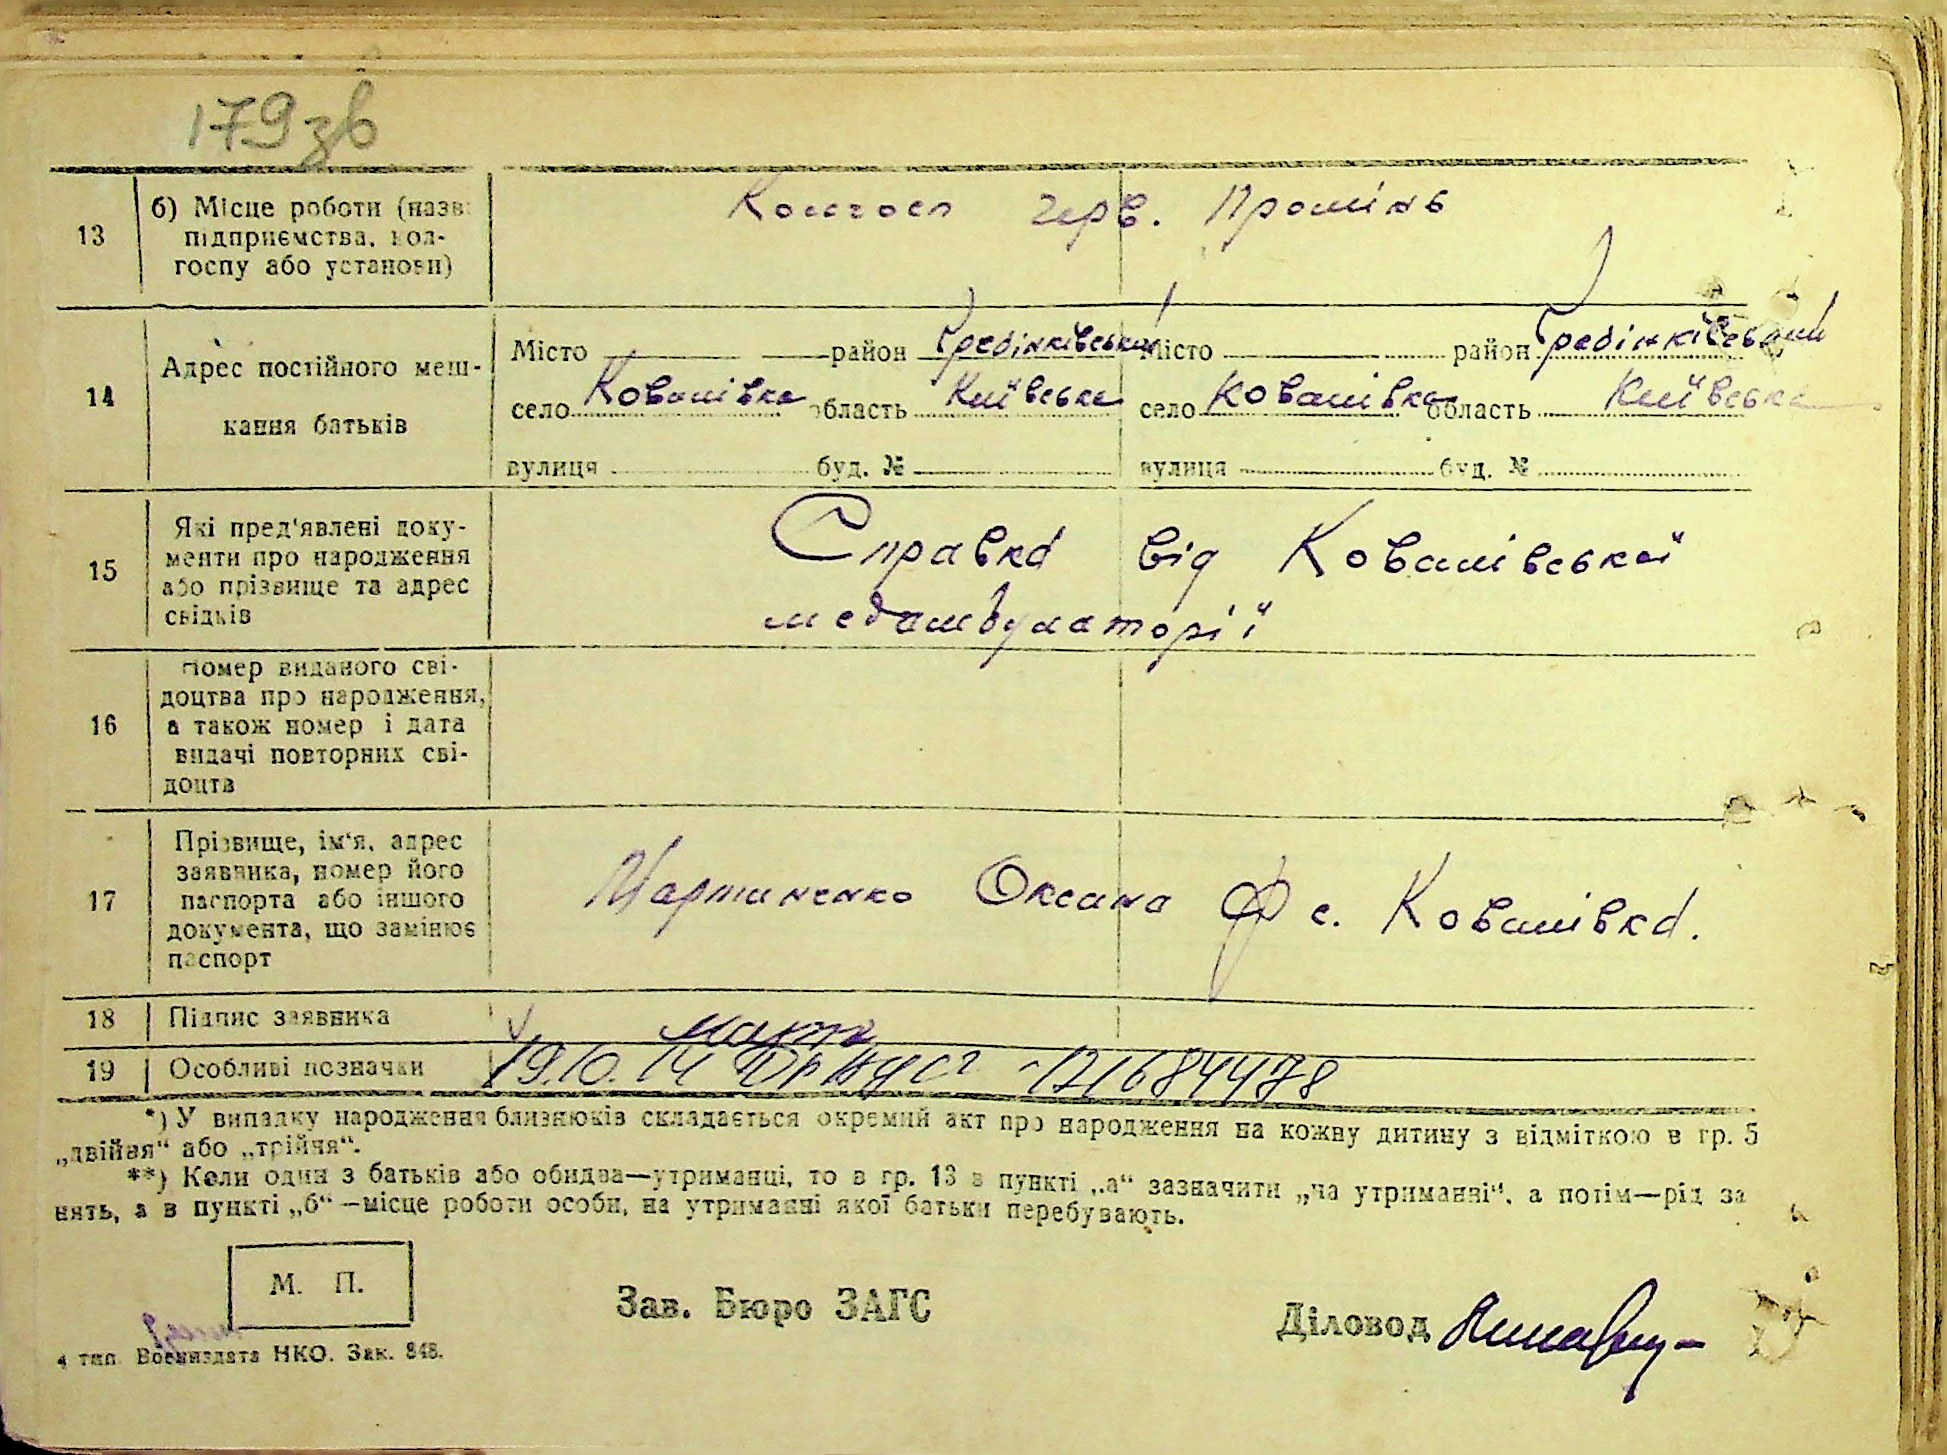 179зв
13 б) Місце роботи (назва підприємства, кол-
госпу або установи)
Колгосп Черв. Промінь
14 Адрес постійного меш-
кання батьків
Місто район Гребінківський Місто район Гребінківський
село Ковалівка область Київська село Ковалівка область Київська
вулиця буд. № вулиця буд. №
15 Які пред'явлені доку-
менти про народження
або прізвище та адрес
свідків
Справка від Ковалівської
медамбулаторії
16 Номер виданого сві-
доцтва про народження,
а також номер і дата
видачі повторних сві-
доцтв
17 Прізвище, ім'я, адрес
заявника, номер його
паспорта або іншого
документа, що замінює
паспорт
Мартиненко Оксана Ф с. Ковалівка.
18 Підпис заявника Март
19 Особливі позначки 19.10.14
*) У випадку народження близнюків складається окремий акт про народження на кожну дитину з відміткою в гр. 5
„двійня“ або „трійня“.
**) Коли один з батьків або обидва—утриманці, то в гр. 13 в пункті „а“ зазначити „на утриманні“, а потім—рід за
нять, а в пункті „б“ —місце роботи особи, на утриманні якої батьки перебувають.
М. П.
Зав. Бюро ЗАГС
Діловод
4 тип. Воениздата НКО. Зак. 848.